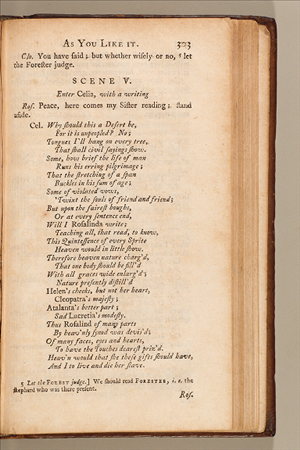 AS YOU LIKE IT. 323
Clo. You have said; but whether wisely or no, ⁵ let
the Forester judge.
SCENE V.
Enter Celia, with a writing
Ros. Peace, here comes my Sister reading; stand
aside.
Cel. Why should this a Desert be,
For it is unpeopled? No;
Tongues I'll hang on every tree,
That shall civil sayings show.
Some, how brief the life of man
Runs his erring pilgrimage;
That the stretching of a span
Buckles in his sum of age;
Some of violated vows,
'Twixt the souls of friend and friend;
But upon the fairest boughs,
Or at every sentence end,
Will I Rosalinda write;
Teaching all, that read, to know,
This Quintessence of every Sprite
Heaven would in little show.
Therefore heaven nature charg'd,
That one body should be fill'd
With all graces wide enlarg'd;
Nature presently distill'd
Helen's cheeks, but not her heart,
Cleopatra's majesty;
Atalanta's better part;
Sad Lucretia's modesty.
Thus Rosalind of many parts
By heav'nly synod was devis'd;
Of many faces, eyes and hearts,
To have the Touches dearest priz'd.
Heav'n would that she these gifts should have,
And I to live and die her slave.
5 Let the FOREST judge.] We should read FORESTER, i. e. the
shepherd who was there present.
Ros.